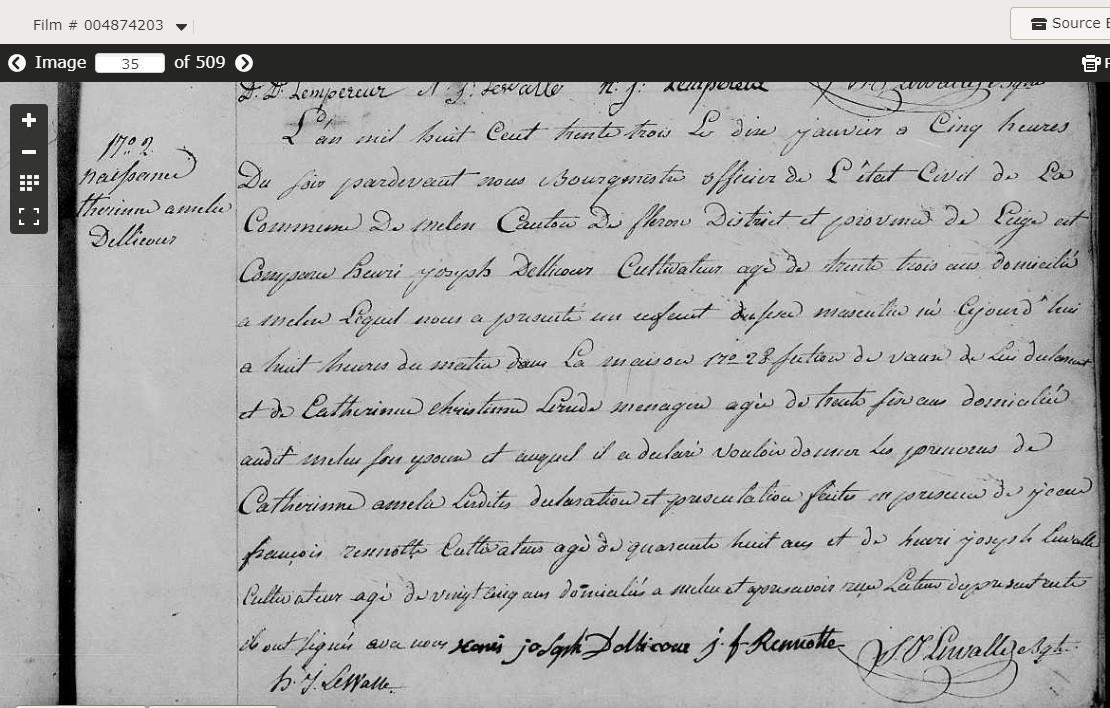 Film # 004874203
Source
Image 35 of 509
D. D. Lempereur H. J. Lewalle n. j. Lempereur
L'an mil huit Cent trente trois Le dix janvier a Cinq heures
Du soir pardevant nous Bourgmestre officier de L'état Civil de La
Commune De melen Canton De fleron District et province de Liege est
Comparu henri joseph Dellicour Cultivateur agé de trente trois ans domicilié
a melen Lequel nous a presenté un enfent du sexe masculin né Cejourd'hui
a huit heures du matin dans La maison no 28 section de vaux de Lui declarant
et de Catherinne christinne menagere agée de trente six ans domiciliée
audit melen son epouse et auquel il a declaré vouloir donner Les prenoms de
Catherinne amelie Lesdites declaration et presentation faites en presence de jean
françois rennotte Cultivateur agé de quarante huit ans et de henri joseph Lewalle
Cultivateur agé de vingt Cinq ans domiciliés a melen et apres avoir Lecture du present acte
ils ont signés avec nous henri joseph Dellicour j. f Rennotte J. J Lewalle
h. J. LeWalle
no 2
naissance
therinne amelie
Dellicour